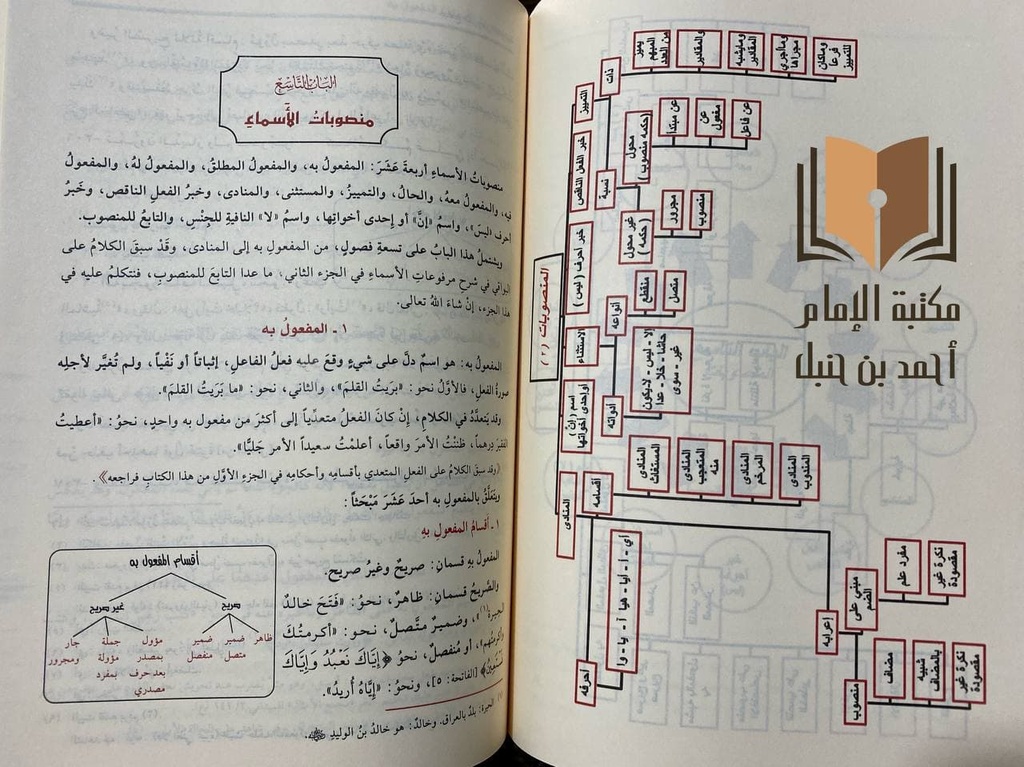 المنصوبات (٢)
التمييز
خبر الفعل الناقص
خبر أحرف (ليس)
الاستثناء
اسم (إنّ)
أو إحدى أخواتها
المنادى
ذات
يميز
العدد
المبهم
من
والمقادير
ومايشبه
المقادير
وما أجري
مجراها
وماكان
فرعا
للتمييز
نسبة
محول
(حكمه منصوب)
عن مبتدأ
عن
مفعول
عن فاعل
غير محول
حكمه
مجرور
منصوب
أنواعه
منقطع
متصل
أدواته
إلا - ليس - لايكون
حاشا - خلا - عدا
غير - سوى
أقسامه
المنادى
المستغاث
المنادى
المتعجب
منه
المنادى
المرخم
المنادى
المندوب
أحرفه
أي - أ - أيا - هيا - آ - يا - وا
إعرابه
مبني على
الضم
مفرد
علم
نكرة غير
مقصودة
منصوب
مضاف
شبيه
بالمضاف
نكرة غير
مقصودة
مكتبة الإمام
أحمد بن حنبل
الباب التاسع
منصوبات الأسماء
منصوباتُ الأسماءِ أربعةَ عَشَرَ: المفعولُ به، والمفعولُ المطلقُ، والمفعولُ لهُ، والمفعولُ
فيه، والمفعولُ معهُ، والحالُ، والتمييزُ، والمستثنى، والمنادى، وخبرُ الفعلِ الناقصِ، وخَبرُ
أحرف «ليسَ»، واسمُ «إنَّ» أو إحدى أخواتِها، واسمُ «لا» النافيةِ للجِنْسِ، والتابعُ للمنصوب.
ويشتملُ هذا البابُ على تسعةِ فصولٍ، من المفعولِ به إلى المنادى، وقَدْ سبقَ الكلامُ على
البواقي في شرحِ مرفوعاتِ الأسماءِ في الجزء الثاني، ما عدا التابعَ للمنصوبِ، فنتكلمُ عليه في
هذا الجزء، إنْ شاءَ اللهُ تعالى.
١ ـ المفعولُ به
المفعولُ به: هو اسمٌ دلَّ على شيءٍ وقعَ عليه فعلُ الفاعلِ، إثباتاً أو نَفْياً، ولم تُغيَّر لأجلِه
صورةُ الفعلِ، فالأوَّلُ نحوُ: «بَرَيتُ القلمَ»، والثاني، نحوُ: «ما بَرَيتُ القلمَ».
وقد يتعدَّدُ في الكلامِ، إنْ كانَ الفعلُ متعدِّياً إلى أكثرَ من مفعولٍ به واحدٍ، نحوُ: «أعطيتُ
الفقيرَ درهماً، ظننتُ الأمرَ واقعاً، أعلمتُ سعيداً الأمرَ جَليًّا».
(وقد سبقَ الكلامُ على الفعلِ المتعدي بأقسامِه وأحكامِه في الجزءِ الأوَّلِ من هذا الكتابِ فراجعه).
ويتعلَّقُ بالمفعولِ به أحدَ عَشَرَ مَبْحَثاً:
١ ـ أقسامُ المفعولِ بِهِ
المفعولُ بهِ قسمانِ: صريحٌ وغيرُ صريح.
والصَّريحُ قسمانِ: ظاهرٌ، نحوُ: «فَتَحَ خالدٌ
الحِيرةَ(١)»، وضميرٌ متَّصلٌ، نحو: «أكرمتُكَ
وأكرمتُهم»، أو مُنفصلٌ، نحوُ ﴿إِيَّاكَ نَعْبُدُ وَإِيَّاكَ
نَسْتَعِينُ﴾ [الفاتحة: ٥]، ونحوُ: «إيَّاهُ أُريدُ».
أقسام المفعول به
صريح
غير صريح
ظاهر
ضمير
متصل
ضمير
منفصل
مؤول
بمصدر
بعد حرف
مصدري
جملة
مؤولة
بمفرد
جار
ومجرور
(١) الحِيرة: بلدٌ بالعراق. وخالدٌ: هو خالدُ بنُ الوليدِ رضي الله عنه.